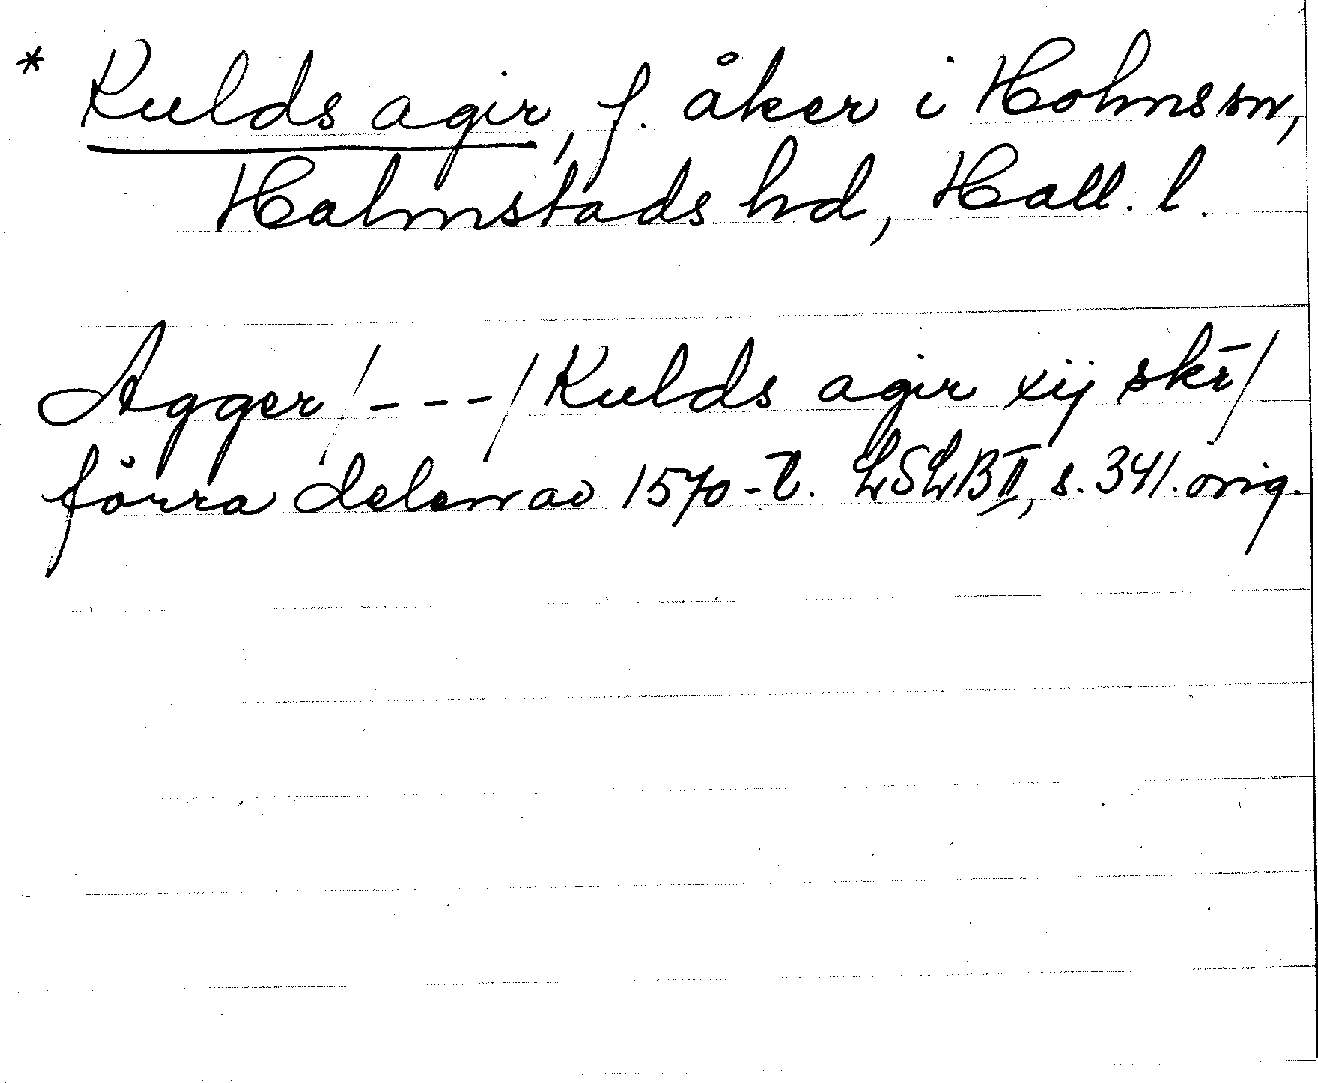 * Kulds agir, f. åker i Holms sn,
Halmstads hd, Hall. l.
Agger/---/Kulds agir xij skr̄/
förra delen av 1570-t. LSLB II, s. 341. orig.